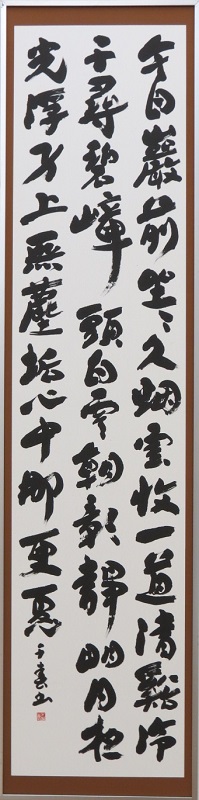 今日巖前坐々久烟雲收一道清谿冷
千尋碧嶂頭白雲朝影靜明月夜
光浮身上無塵垢心中那更憂